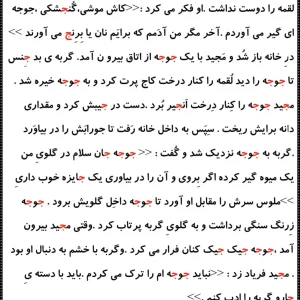 لقمه را دوست نداشت .او فکر می کرد :<<کاش موشی،گُنجشکی ،جوجه
ای گیر می آوردم .آخر مگر من آدَمم که برایَم نان یا بِرِنج می آورند >>
دَر خانه باز شُد و مَجید با یک جوجه از اتاق بیرو ن آمد. گربه ی بد جِنس
تا جوجه را دید لُقمه را کنار درخت کاج پرت کرد و به جوجه خیره شد .
مَجید جوجه را کِنار دِرخت اَنجیر بُرد .دست در جیبش کرد و مقداری
دانه برایش ریخت . سِپَس به داخل خانه رَفت تا جورابَش را در بیاوَرد
.گربه به جوجه نزدیک شد و گُفت : << جوجه جان سلام در گلوی من
یک میوه گیر کرده اگر بِروی و آن را در بیاوری یک جایزه خوب داری
>>ملوس سرش را مقابل او آورد تا جوجه داخِل گلویش برود . جوجه
زرنگ سنگی برداشت و به گلوی گربه پرتاب کرد. وقتی مجید بیرون
آمد ،جوجه جیک جیک کنان فرار می کرد .وگربه با خشم به دنبال او بود
. مجید فریاد زد : <<نباید جوجه ام را ترک می کردم .باید با دسته ی
جارو گربه را ادب کنم .<<